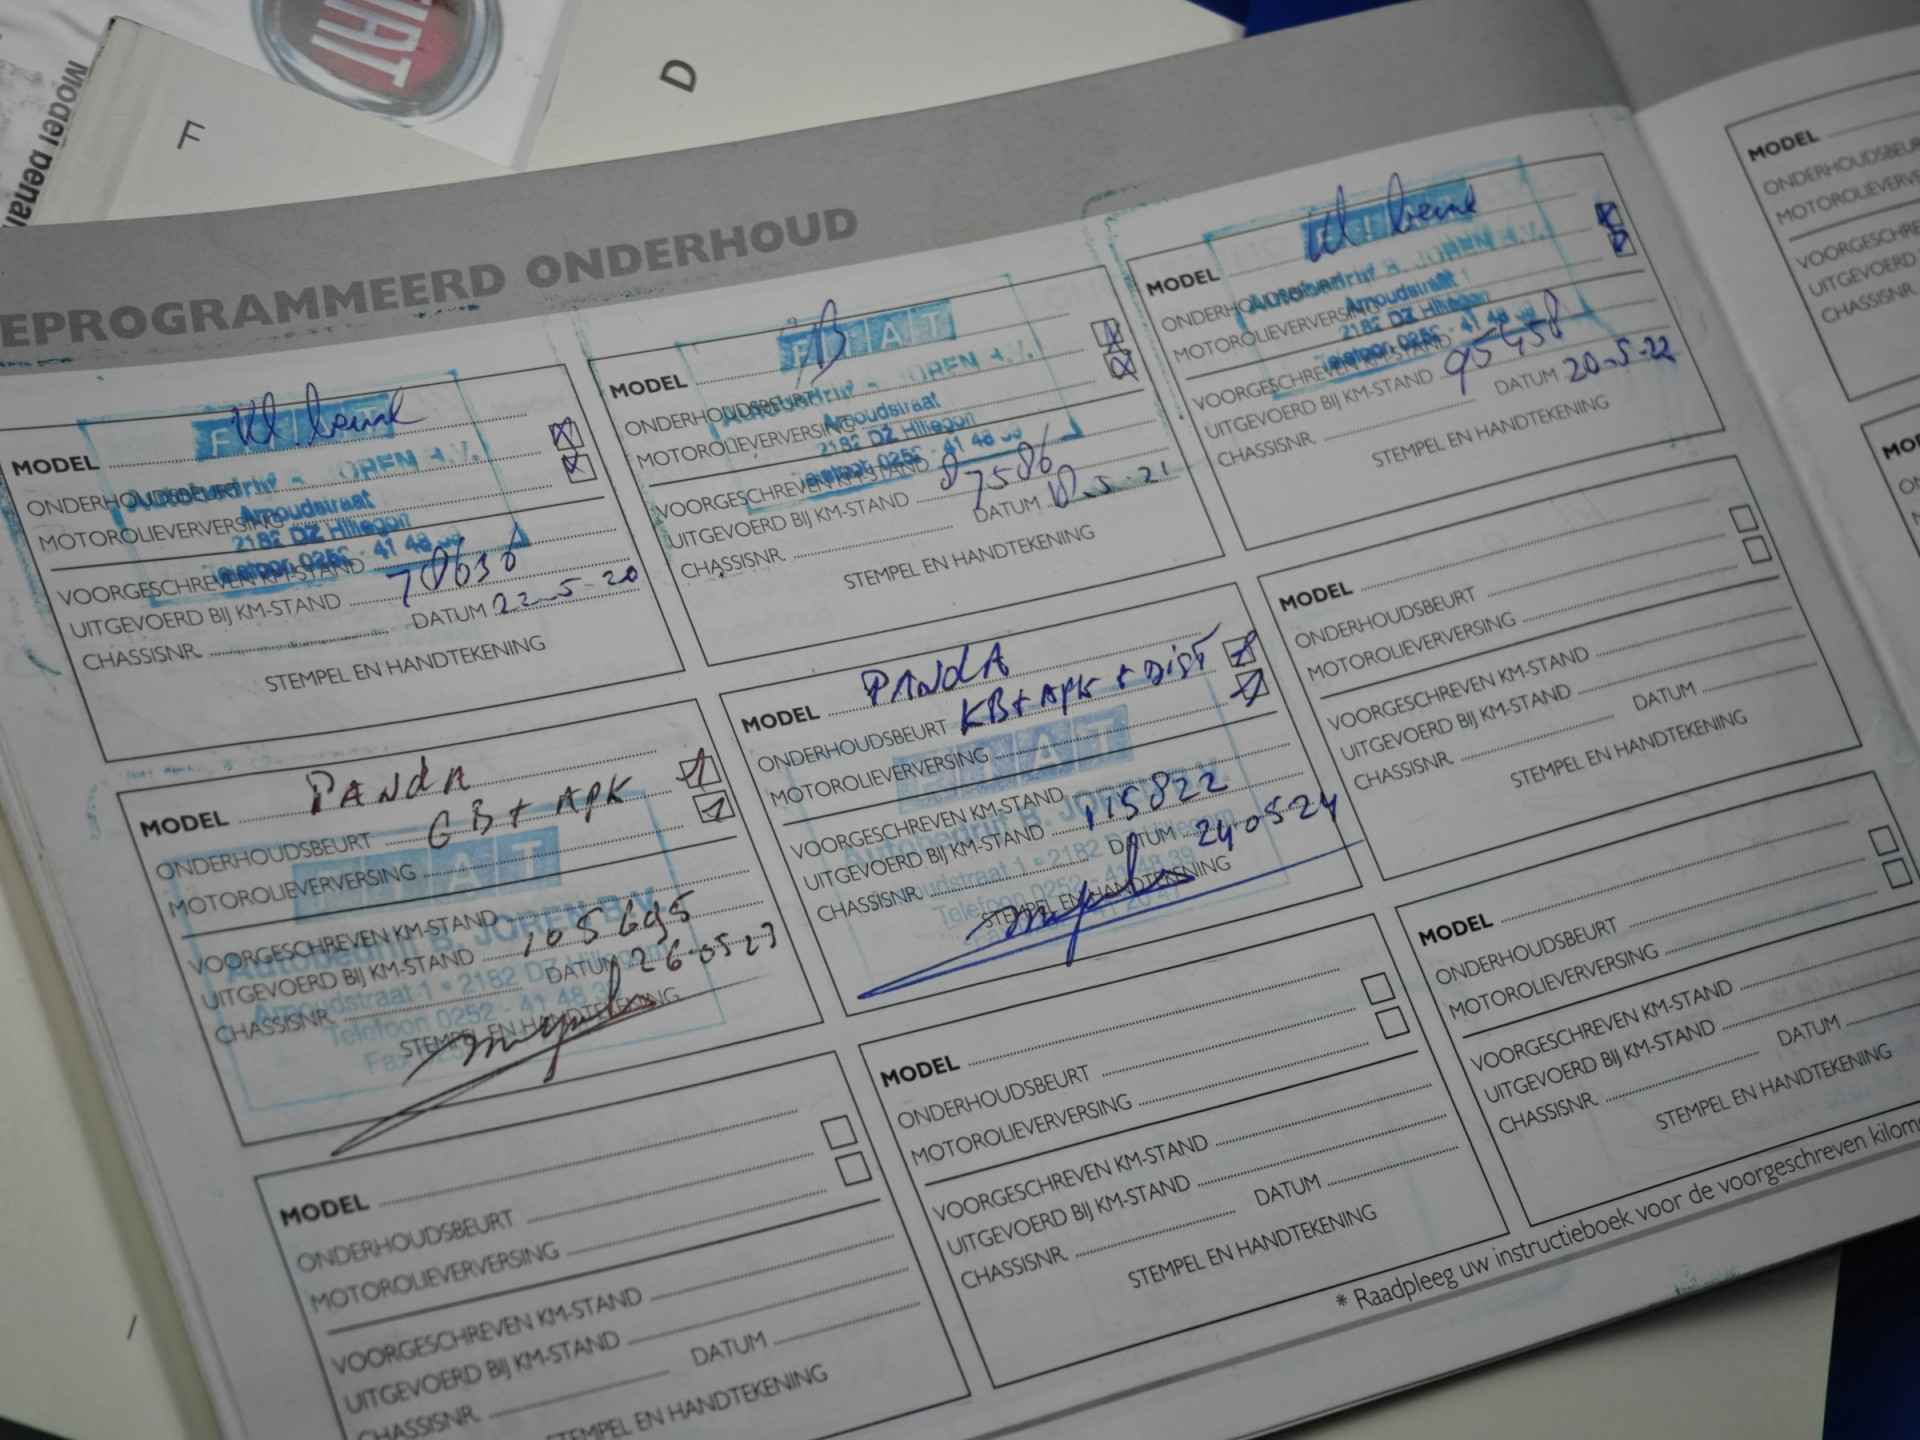 FIAT
F
D
Model
EPROGRAMMEERD ONDERHOUD
Kl. beurt
MODEL
ONDERHOUDSBEURT
MOTOROLIEVERVERSING
Arnoudstraat
2182 DZ Hillegom
VOORGESCHREVEN KM-STAND
UITGEVOERD BIJ KM-STAND 78636
CHASSISNR. DATUM 22-5-20
STEMPEL EN HANDTEKENING
FIAT
MODEL
ONDERHOUDSBEURT
MOTOROLIEVERVERSING
Arnoudstraat
2182 DZ Hillegom
VOORGESCHREVEN KM-STAND
UITGEVOERD BIJ KM-STAND 87586
CHASSISNR. DATUM 18-5-21
STEMPEL EN HANDTEKENING
Kl beurt
MODEL
ONDERHOUDSBEURT
MOTOROLIEVERVERSING
Arnoudstraat
2182 DZ Hillegom
VOORGESCHREVEN KM-STAND
UITGEVOERD BIJ KM-STAND 95458
CHASSISNR. DATUM 20-5-22
STEMPEL EN HANDTEKENING
MODEL PANdA
ONDERHOUDSBEURT GB + APK
MOTOROLIEVERVERSING
FIAT
VOORGESCHREVEN KM-STAND
Autobedrijf B. JOREN B.V.
UITGEVOERD BIJ KM-STAND 105695
Arnoudstraat 1 • 2182 DZ Hillegom
CHASSISNR. DATUM 26-05 23
Telefoon 0252 - 41 48 39
STEMPEL EN HANDTEKENING
MODEL PANdA
ONDERHOUDSBEURT KB + APK + DIST
MOTOROLIEVERVERSING
FIAT
VOORGESCHREVEN KM-STAND
Autobedrijf B. JOREN B.V.
UITGEVOERD BIJ KM-STAND 115822
Arnoudstraat 1 • 2182 DZ Hillegom
CHASSISNR. DATUM 24-05 24
Telefoon 0252 - 41 48 39
STEMPEL EN HANDTEKENING
MODEL
ONDERHOUDSBEURT
MOTOROLIEVERVERSING
VOORGESCHREVEN KM-STAND
UITGEVOERD BIJ KM-STAND
CHASSISNR. DATUM
STEMPEL EN HANDTEKENING
MODEL
ONDERHOUDSBEURT
MOTOROLIEVERVERSING
VOORGESCHREVEN KM-STAND
UITGEVOERD BIJ KM-STAND
CHASSISNR. DATUM
STEMPEL EN HANDTEKENING
MODEL
ONDERHOUDSBEURT
MOTOROLIEVERVERSING
VOORGESCHREVEN KM-STAND
UITGEVOERD BIJ KM-STAND
CHASSISNR. DATUM
STEMPEL EN HANDTEKENING
MODEL
ONDERHOUDSBEURT
MOTOROLIEVERVERSING
VOORGESCHREVEN KM-STAND
UITGEVOERD BIJ KM-STAND
CHASSISNR. DATUM
STEMPEL EN HANDTEKENING
* Raadpleeg uw instructieboek voor de voorgeschreven kilom
MODEL
ONDERHOUDSBEUR
MOTOROLIEVERVE
VOORGESCHRE
UITGEVOERD
CHASSISNR.